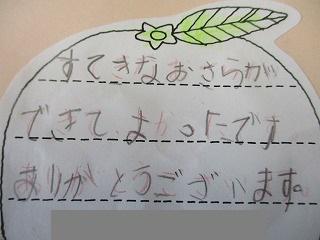 すてきなおさらが
できて、よかったです
ありがとうございます。